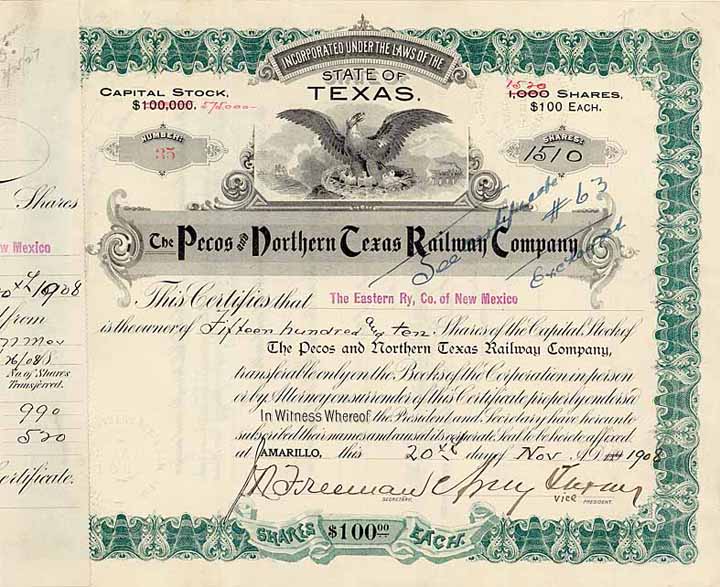 INCORPORATED UNDER THE LAWS OF THE
STATE OF
TEXAS.
CAPITAL STOCK,
$100,000. 575000-
1520
1,000 SHARES,
$100 EACH.
NUMBER:
35
SHARES:
1510
See certificate
# 63
Exchanged
The Pecos AND Northern Texas Railway Company
This Certifies that The Eastern Ry, Co. of New Mexico
is the owner of Fifteen hundred and ten Shares of the Capital Stock of
The Pecos and Northern Texas Railway Company,
transferable only on the Books of the Corporation in person
or by Attorney on surrender of this Certificate properly endorsed
In Witness Whereof the President and Secretary have hereunto
subscribed their names and caused its corporate Seal to be hereto affixed.
at AMARILLO, this 20th day of Nov A.D. 1908
Freeman
SECRETARY.
Vice PRESIDENT.
SHARES $100.00 EACH.
Shares
w Mexico
1908
from
No. of Shares
Transferred.
990
520
ertificate.